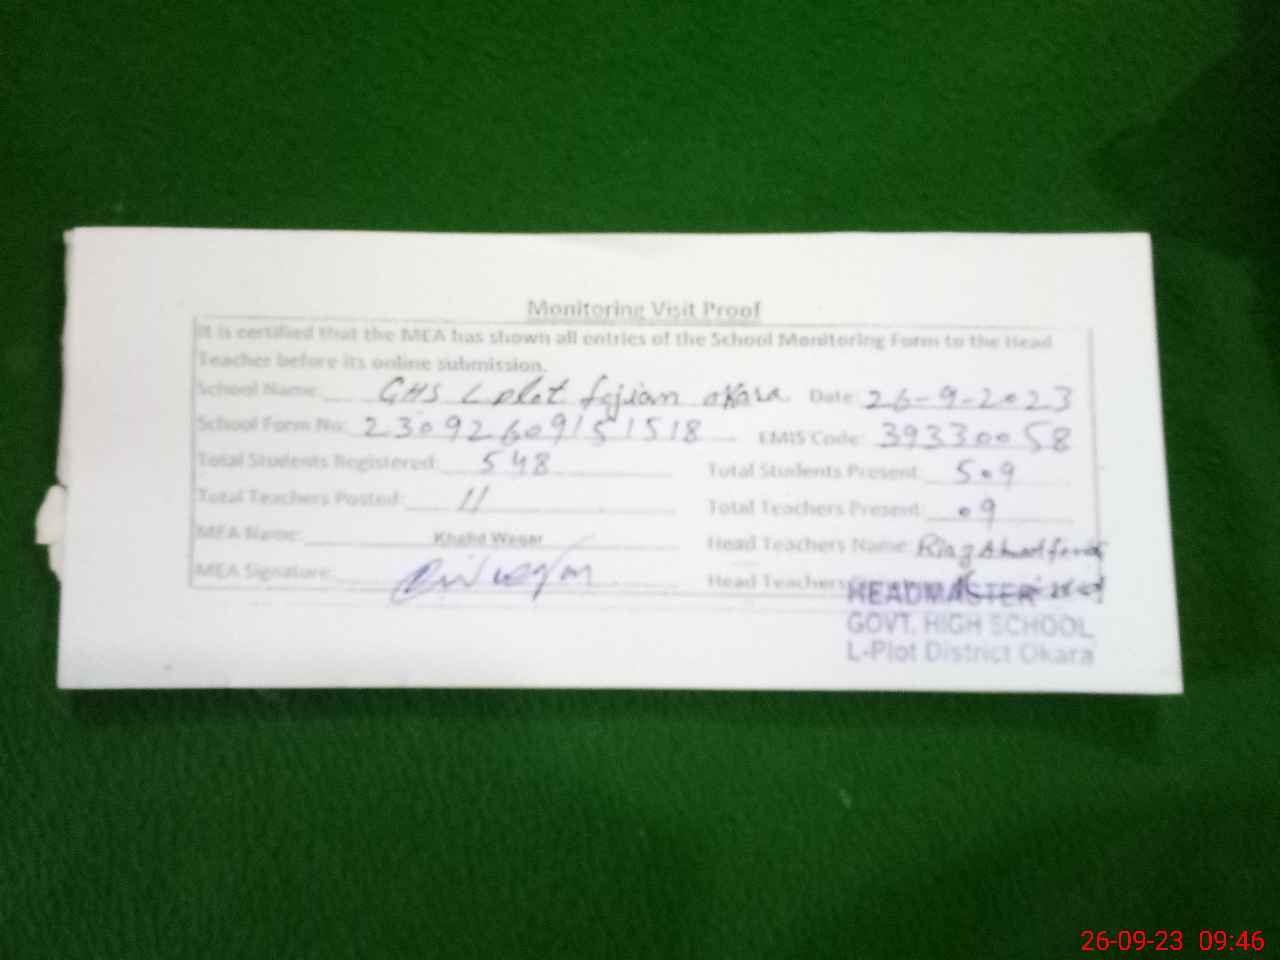 Monitoring Visit Proof
It is certified that the MEA has shown all entries of the School Monitoring Form to the Head
Teacher before its online submission.
School Name: GHS L plot fojian okara Date: 26-9-2023
School Form No: 23092609151518 EMIS Code: 39330058
Total Students Registered: 548 Total Students Present: 509
Total Teachers Posted: 11 Total Teachers Present: 09
MEA Name: Khalid Waqar Head Teachers Name: Riaz Ahmad
MEA Signature: Head Teachers
HEADMASTER
GOVT. HIGH SCHOOL
L-Plot District Okara
26-09-23 09:46